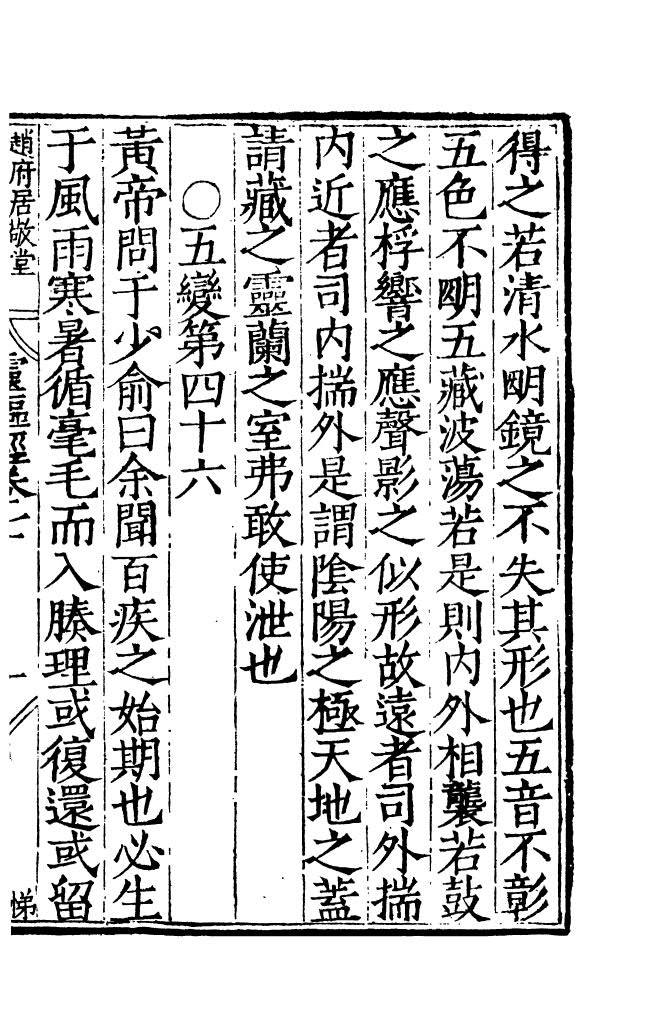 得之若清水明鏡之不失其形也五音不彰
五色不明五藏波蕩若是則內外相襲若鼓
之應桴響之應聲影之似形故遠者司外揣
內近者司內揣外是謂陰陽之極天地之蓋
請藏之靈蘭之室弗敢使泄也
○五變第四十六
黃帝問于少俞曰余聞百疾之始期也必生
于風雨寒暑循毫毛而入腠理或復還或留
趙府居敬堂